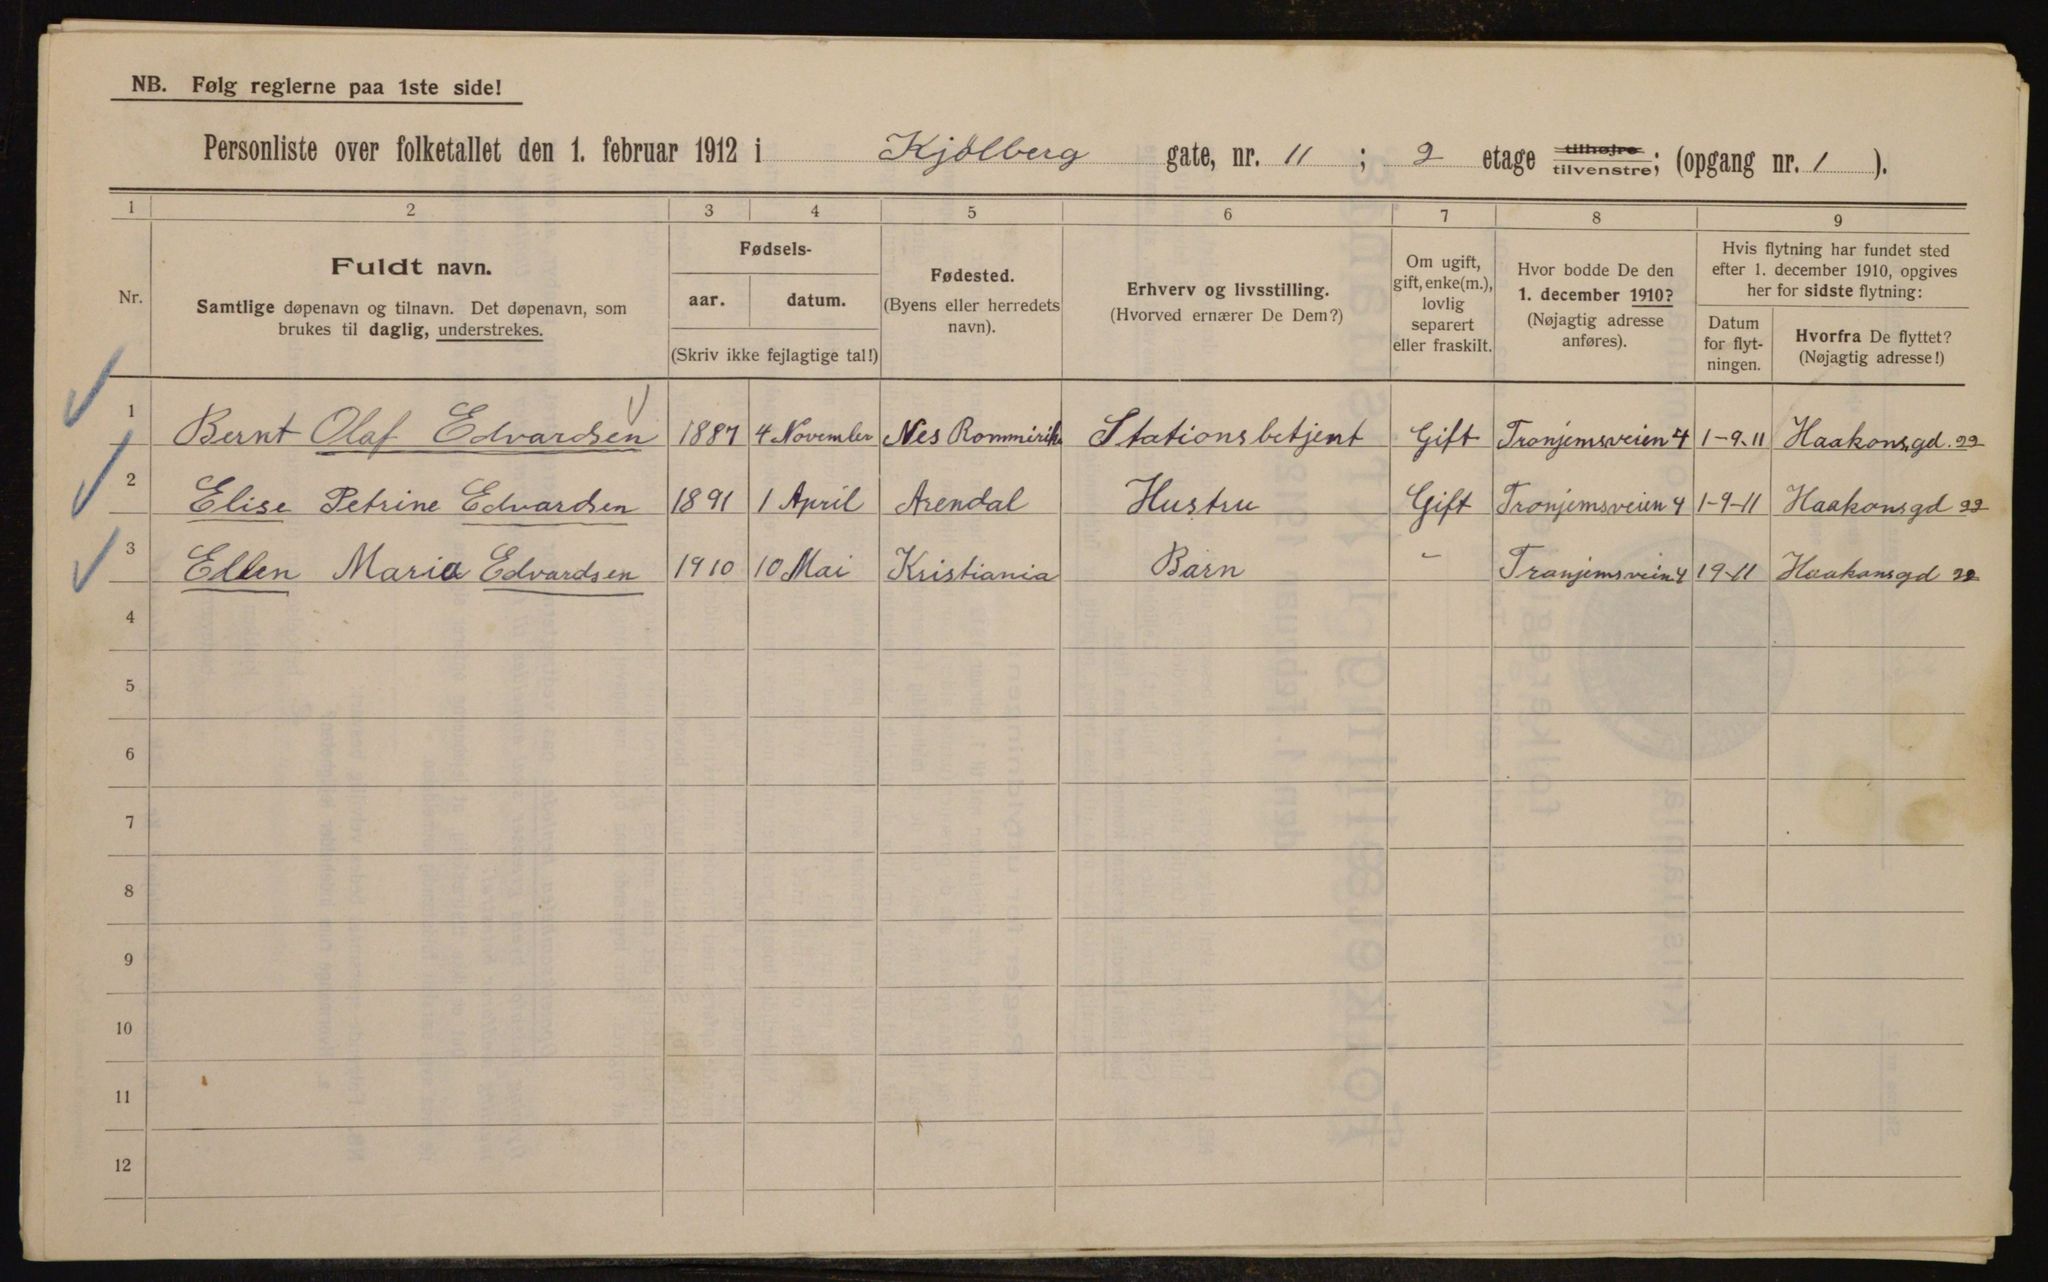 NB. Følg reglerne paa 1ste side!
Personliste over folketallet den 1. februar 1912 i Kjölberg gate, nr. 11 ; 2 etage tilhøjre tilvenstre; (opgang nr. 1 ).
1 2 3 4 5 6 7 8 9
Nr.
Fuldt navn.
Samtlige døpenavn og tilnavn. Det døpenavn, som
brukes til daglig, understrekes.
Fødsels-
aar. datum.
(Skriv ikke fejlagtige tal!)
Fødested.
(Byens eller herredets
navn).
Erhverv og livsstilling.
(Hvorved ernærer De Dem?)
Om ugift,
gift, enke(m.),
lovlig
separert
eller fraskilt.
Hvor bodde De den
1. december 1910?
(Nøjagtig adresse
anføres).
Hvis flytning har fundet sted
efter 1. december 1910, opgives
her for sidste flytning:
Datum
for flyt-
ningen.
Hvorfra De flyttet?
(Nøjagtig adresse!)
1 Bernt Olaf Edvardsen 1887 4 November Nes Rommirike Stationsbetjent Gift Tronjemsveien 4 1-9-11 Haakonsgd. 22
2 Elise Petrine Edvardsen 1891 1 April Arendal Hustru Gift Tronjemsveien 4 1-9-11 Haakonsgd 22
3 Ellen Maria Edvardsen 1910 10 Mai Kristiania Barn - Tronjemsveien 4 19-11 Haakonsgd 22
4
5
6
7
8
9
10
11
12